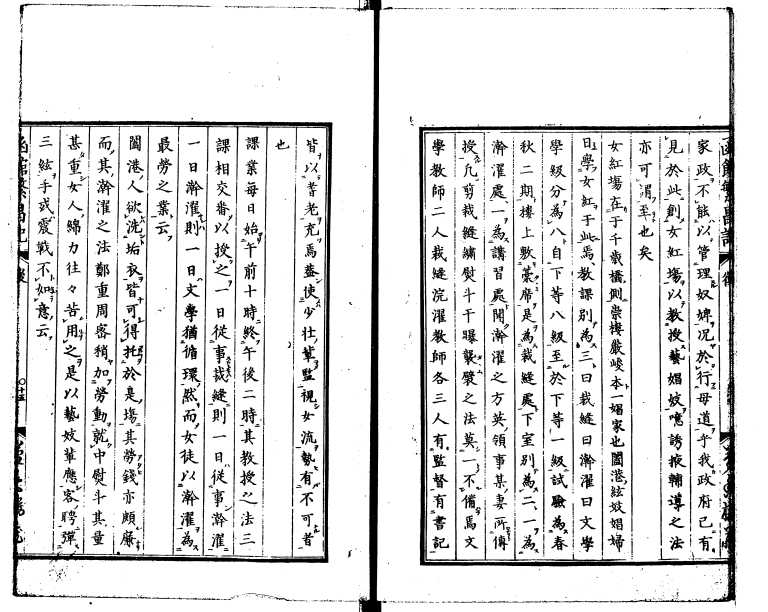 家政不能以管理奴婢况於行母道乎我政府已有
見於此創女紅場以教授藝娼妓噫誘掖輔導之法
亦可謂至也矣
女紅場在于千歳橋側崇樓嚴峻本一娼家也闔港絃妓娼婦
日學女紅于此焉教課別為三曰裁縫曰瀚濯曰文學
學級分為八自下等八級至於下等一級試驗為春
秋二期樓上敷藁席是為裁縫處下室別為二一為
瀚濯處一為講習處聞瀚濯之方英領事某妻所傳
授凡剪裁縫繍熨斗干曝襞襲之法莫一不備焉文
學教師二人裁縫浣濯教師各三人有監督有書記
皆以耆老充焉蓋使少壮輩監視女流勢有不可者
也
課業毎日始午前十時終午後二時其教授之法三
課相交番以授之一日從事裁縫則一日從事瀚濯
一日瀚濯則一日文學猶循環然而女徒以瀚濯為
最勞之業云
闔港人欲洗垢衣皆可得托於是塲其勞錢亦頗廉
而其瀚濯之法鄭重周密稍加勞動就中熨斗其量
甚重女人綿力往々苦用之是以藝妓輩應客聘彈
三絃手或震戰不如意云